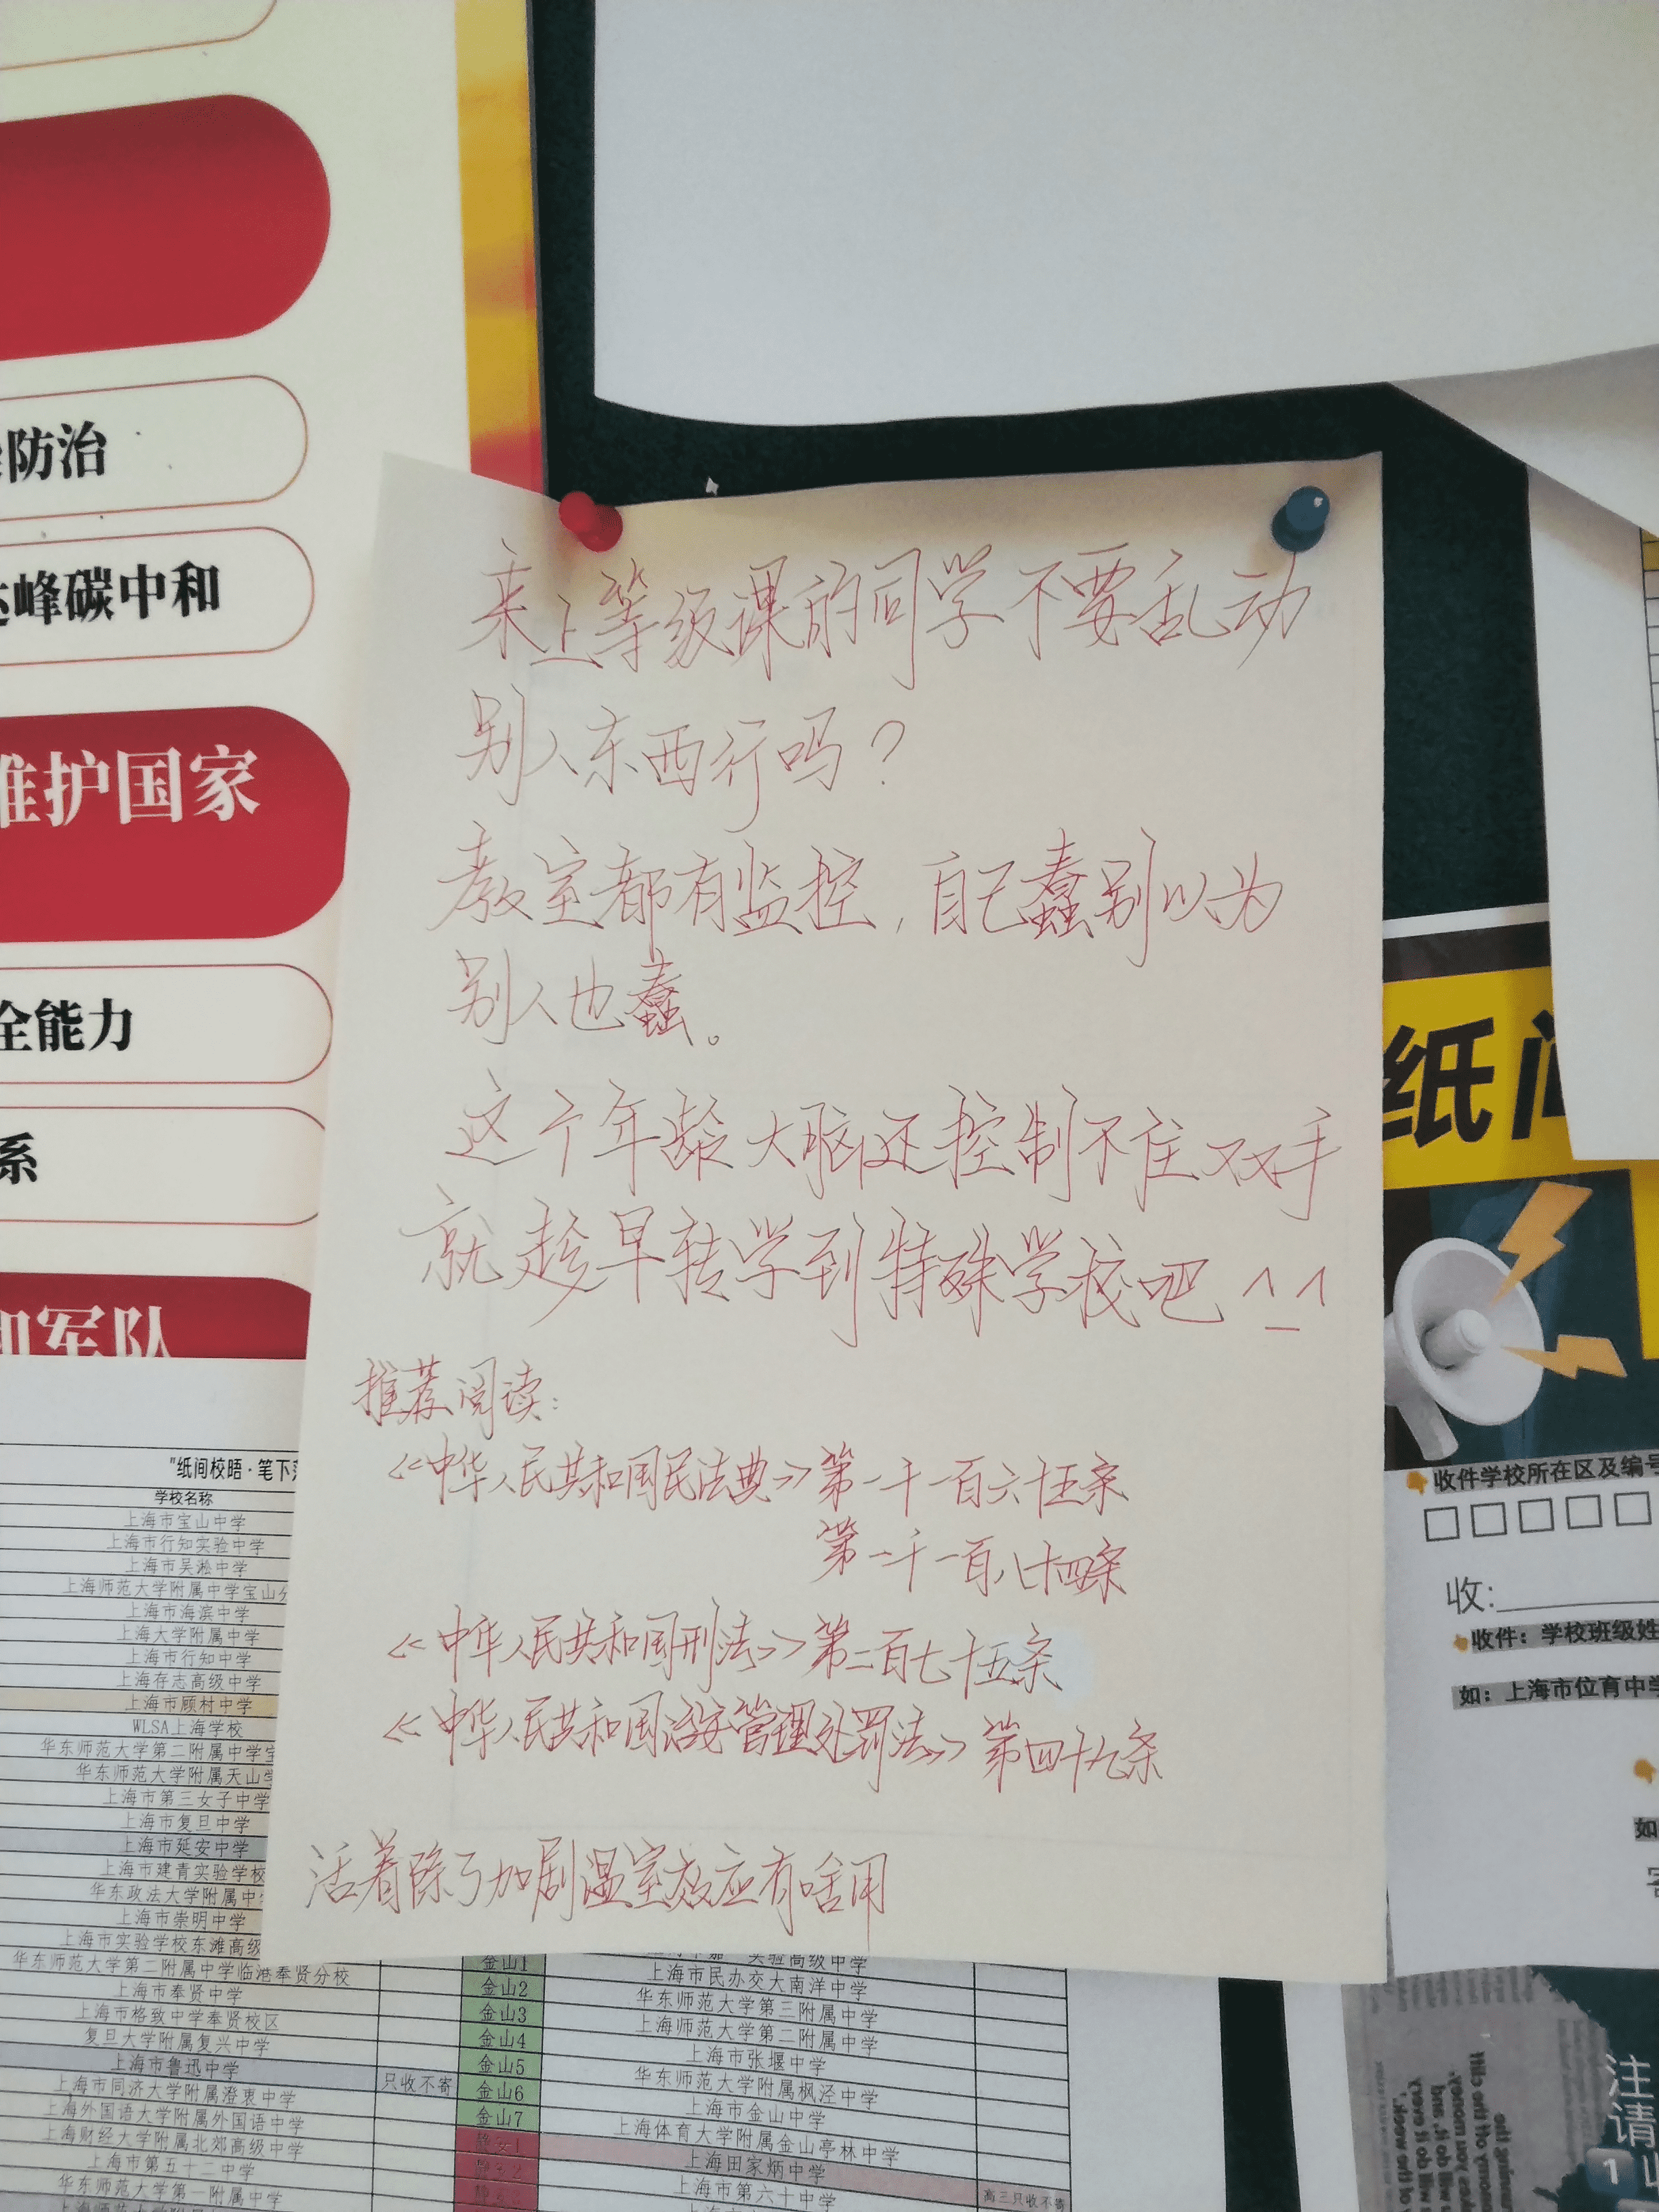 防治
峰碳中和
维护国家
全能力
系
和军队
来上等级课的同学不要乱动
别人东西行吗？
教室都有监控，自己蠢别以为
别人也蠢。
这个年龄大脑还控制不住双手
就趁早转学到特殊学校吧^_^
推荐阅读：
《中华人民共和国民法典》第一千一百六十五条
第一千一百八十四条
《中华人民共和国刑法》第二百七十五条
《中华人民共和国治安管理处罚法》第四十九条
活着除了加剧温室效应有啥用
"纸间校晤·笔下
学校名称
上海市宝山中学
上海市行知实验中学
上海市吴淞中学
上海师范大学附属中学宝山分
上海市海滨中学
上海大学附属中学
上海市行知中学
上海存志高级中学
上海市顾村中学
WLSA上海学校
华东师范大学第二附属中学宝
华东师范大学附属天山学
上海市第三女子中学
上海市复旦中学
上海市延安中学
上海市建青实验学校
华东政法大学附属中
上海市崇明中学
上海市实验学校东滩高级
华东师范大学第二附属中学临港奉贤分校
上海市奉贤中学
上海市格致中学奉贤校区
复旦大学附属复兴中学
上海市鲁迅中学 只收不寄
上海市同济大学附属澄衷中学
上海外国语大学附属外国语中学
上海财经大学附属北郊高级中学
上海市第五十二中学
华东师范大学第一附属中学
金山1 实验高级中学
金山2 上海市民办交大南洋中学
金山3 华东师范大学第三附属中学
金山4 上海师范大学第二附属中学
金山5 上海市张堰中学
金山6 华东师范大学附属枫泾中学
金山7 上海市金山中学
上海体育大学附属金山亭林中学
上海田家炳中学
上海市第六十中学 高三只收不寄
纸间
收件学校所在区及编号
收:
收件：学校班级姓
如：上海市位育中学
如
注
请
1